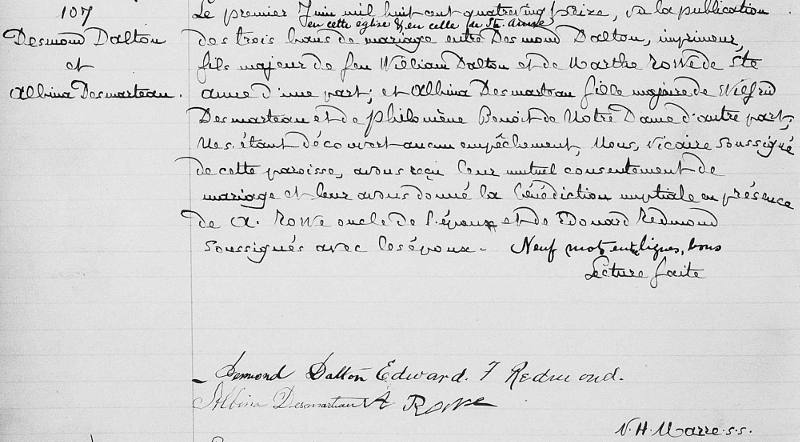 107
Desmond Dalton
et
Albina Desmarteau.
Le premier Juin mil huit cent quatre vingt seize, vu la publication
en cette église & en celle de Ste. Anne
des trois bans de mariage entre Desmond Dalton, imprimeur,
fils majeur de feu William Dalton et de Marthe Rowe de Ste
anne d'une part; et Albina Desmarteau fille majeure de Wilfrid
Desmarteau et de Philomène Benoit de Notre Dame d'autre part,
Ne s'étant découvert aucun empêchement, Nous, Vicaire soussigné
de cette paroisse, avons reçu leur mutuel consentement de
mariage et leur avons donné la bénédiction nuptiale en présence
de A. Rowe oncle de l'époux et de Edouard Redmond
soussignés avec les époux. Neuf mots entrelignes, bons
Lecture faite
Desmond Dalton Edward. F Redmond.
Albina Desmarteau A Rowe
N. H. Marre s.s.